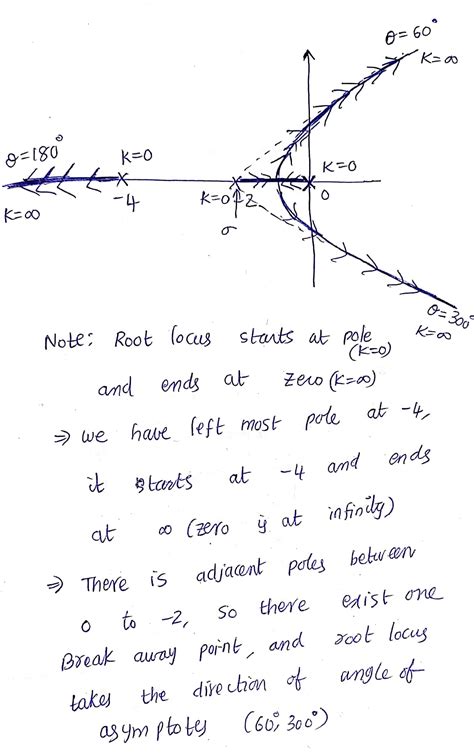 θ=60°
K=∞
θ=180°
K=0
K=0
K=∞
-4
K=0
-2
0
σ
θ=300°
K=∞
Note: Root locus starts at pole
(K=0)
and ends at zero (K=∞)
⇒ we have left most pole at -4,
it starts at -4 and ends
at ∞ (zero is at infinity)
⇒ There is adjacent poles between
0 to -2, so there exist one
Break away point, and root locus
takes the direction of angle of
asymptotes (60°, 300°)